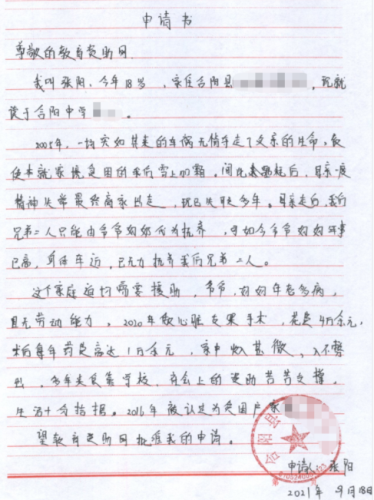 申请书
尊敬的教育资助网
我叫张阳,今年18岁,家住合阳县 现就
读于合阳中学
2005年,一场突如其来的车祸无情夺走了父亲的生命,致
使本就家境贫困的家雪上加霜,间
精神 最终离家出走,现已失联多年。母亲走后,我们
兄弟二人只能由爷爷奶奶 抚养,可如今爷爷奶奶
已高,身体 ,已无力抚养我们兄弟二人。
这个家庭迫切需要援助,爷爷,奶奶年老多病,
且无劳动能力。2020年做心脏支架手术,花费4万余元,
半每年药费高达1万余元,家中收入甚微,入不敷
出,多年来靠学校,社会上的资助苦苦支撑,
生活十分拮据。2016年被认定为贫困户
望教育资助网批准我的申请。
申请人:张阳
2021年 月18日